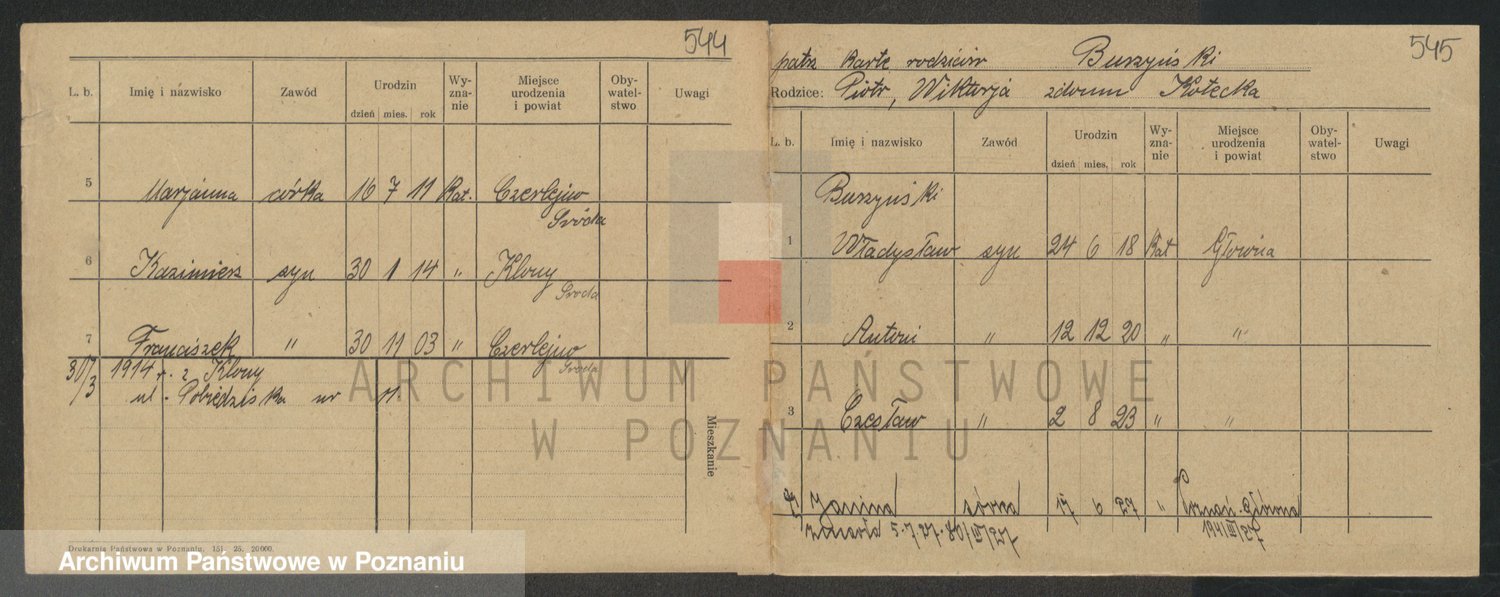 544
L. b. Imię i nazwisko Zawód Urodzin dzień mies. rok Wyznanie Miejsce urodzenia i powiat Obywatelstwo Uwagi
5 Marjanna córka 16 7 11 Kat. Czerlejno
Środa
6 Kazimierz syn 30 1 14 " Klony
Środa
7 Franciszek " 30 11 03 " Czerlejno
Środa
30/3 1914 z Klony
ul. Pobiedziska nr 11
Mieszkanie
Drukarnia Państwowa w Poznaniu. 151. 25. 20000.
545
patrz Kartę rodziców Burzyński
Rodzice: Piotr, Wiktorja zdomu Kotecka
L. b. Imię i nazwisko Zawód Urodzin dzień mies. rok Wyznanie Miejsce urodzenia i powiat Obywatelstwo Uwagi
Burzyński
1 Władysław syn 24 6 18 Kat Główna
2 Antoni " 12 12 20 " "
3 Czesław " 2 8 23 " "
4 Janina córka 17 6 27 " Poznań-Główna
zmarła 5.7.27. 1941/III/27
ARCHIWUM PAŃSTWOWE
W POZNANIU
Archiwum Państwowe w Poznaniu